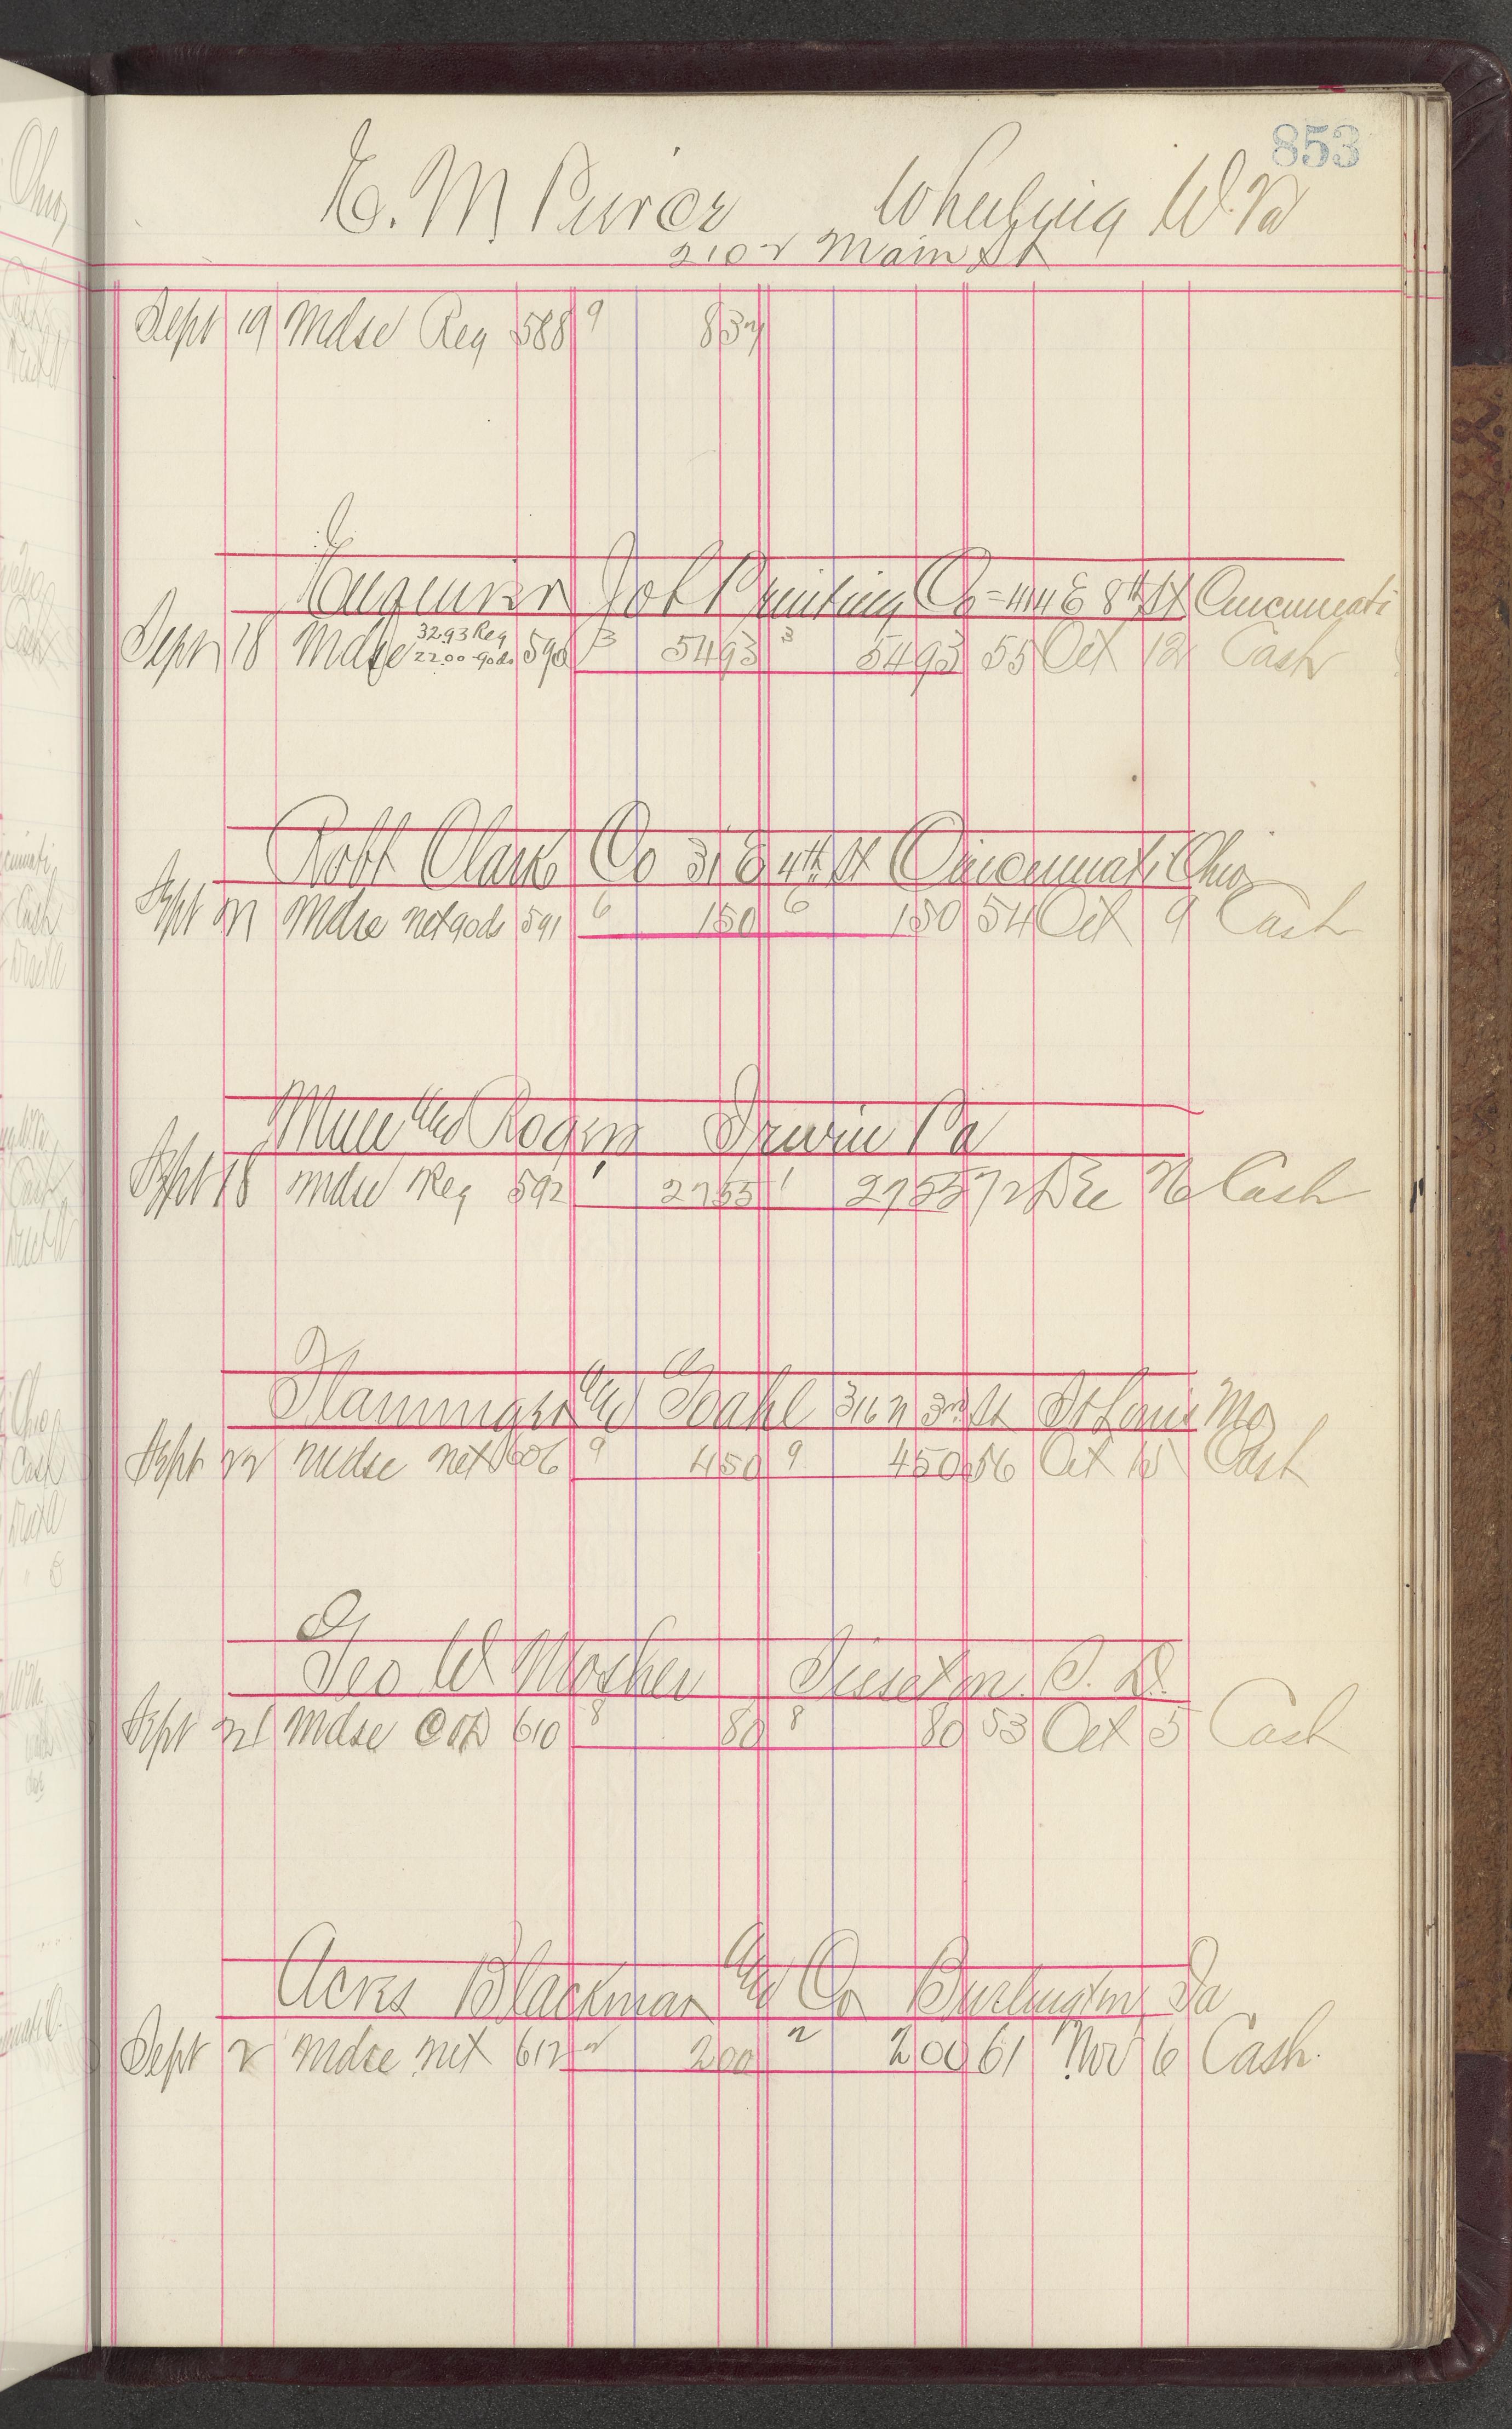 853
E. M. Pierce Wheeling W. Va
2102 Main St
Sept 19 Mdse Reg 588 9 837
Enquirer Job Printing Co - 414 E 8th St Cincinnati
Sept 18 Mdse 32.93 Reg 22.00 -gods 590 3 5493 3 5493 55 Oct 12 Cash
Robt Clark Co 31 E 4th St Cincinnati Ohio
Sept 21 Mdse net gods 591 6 150 6 150 54 Oct 9 Cash
and Rogers Irwin Pa
Sept 18 Mdse Reg 592 1 2755 1 2755 72 Dec 26 Cash
and Gahl 316 N 3rd St St Louis Mo
Sept 22 Mdse net 606 9 450 9 450 56 Oct 15 Cash
Geo W Mosher S. D.
Sept 21 Mdse COD 610 8 80 8 80 53 Oct 5 Cash
Acres Blackmar and Co Burlington Ia
Sept 2 Mdse net 612 2 200 2 200 61 Nov 6 Cash.